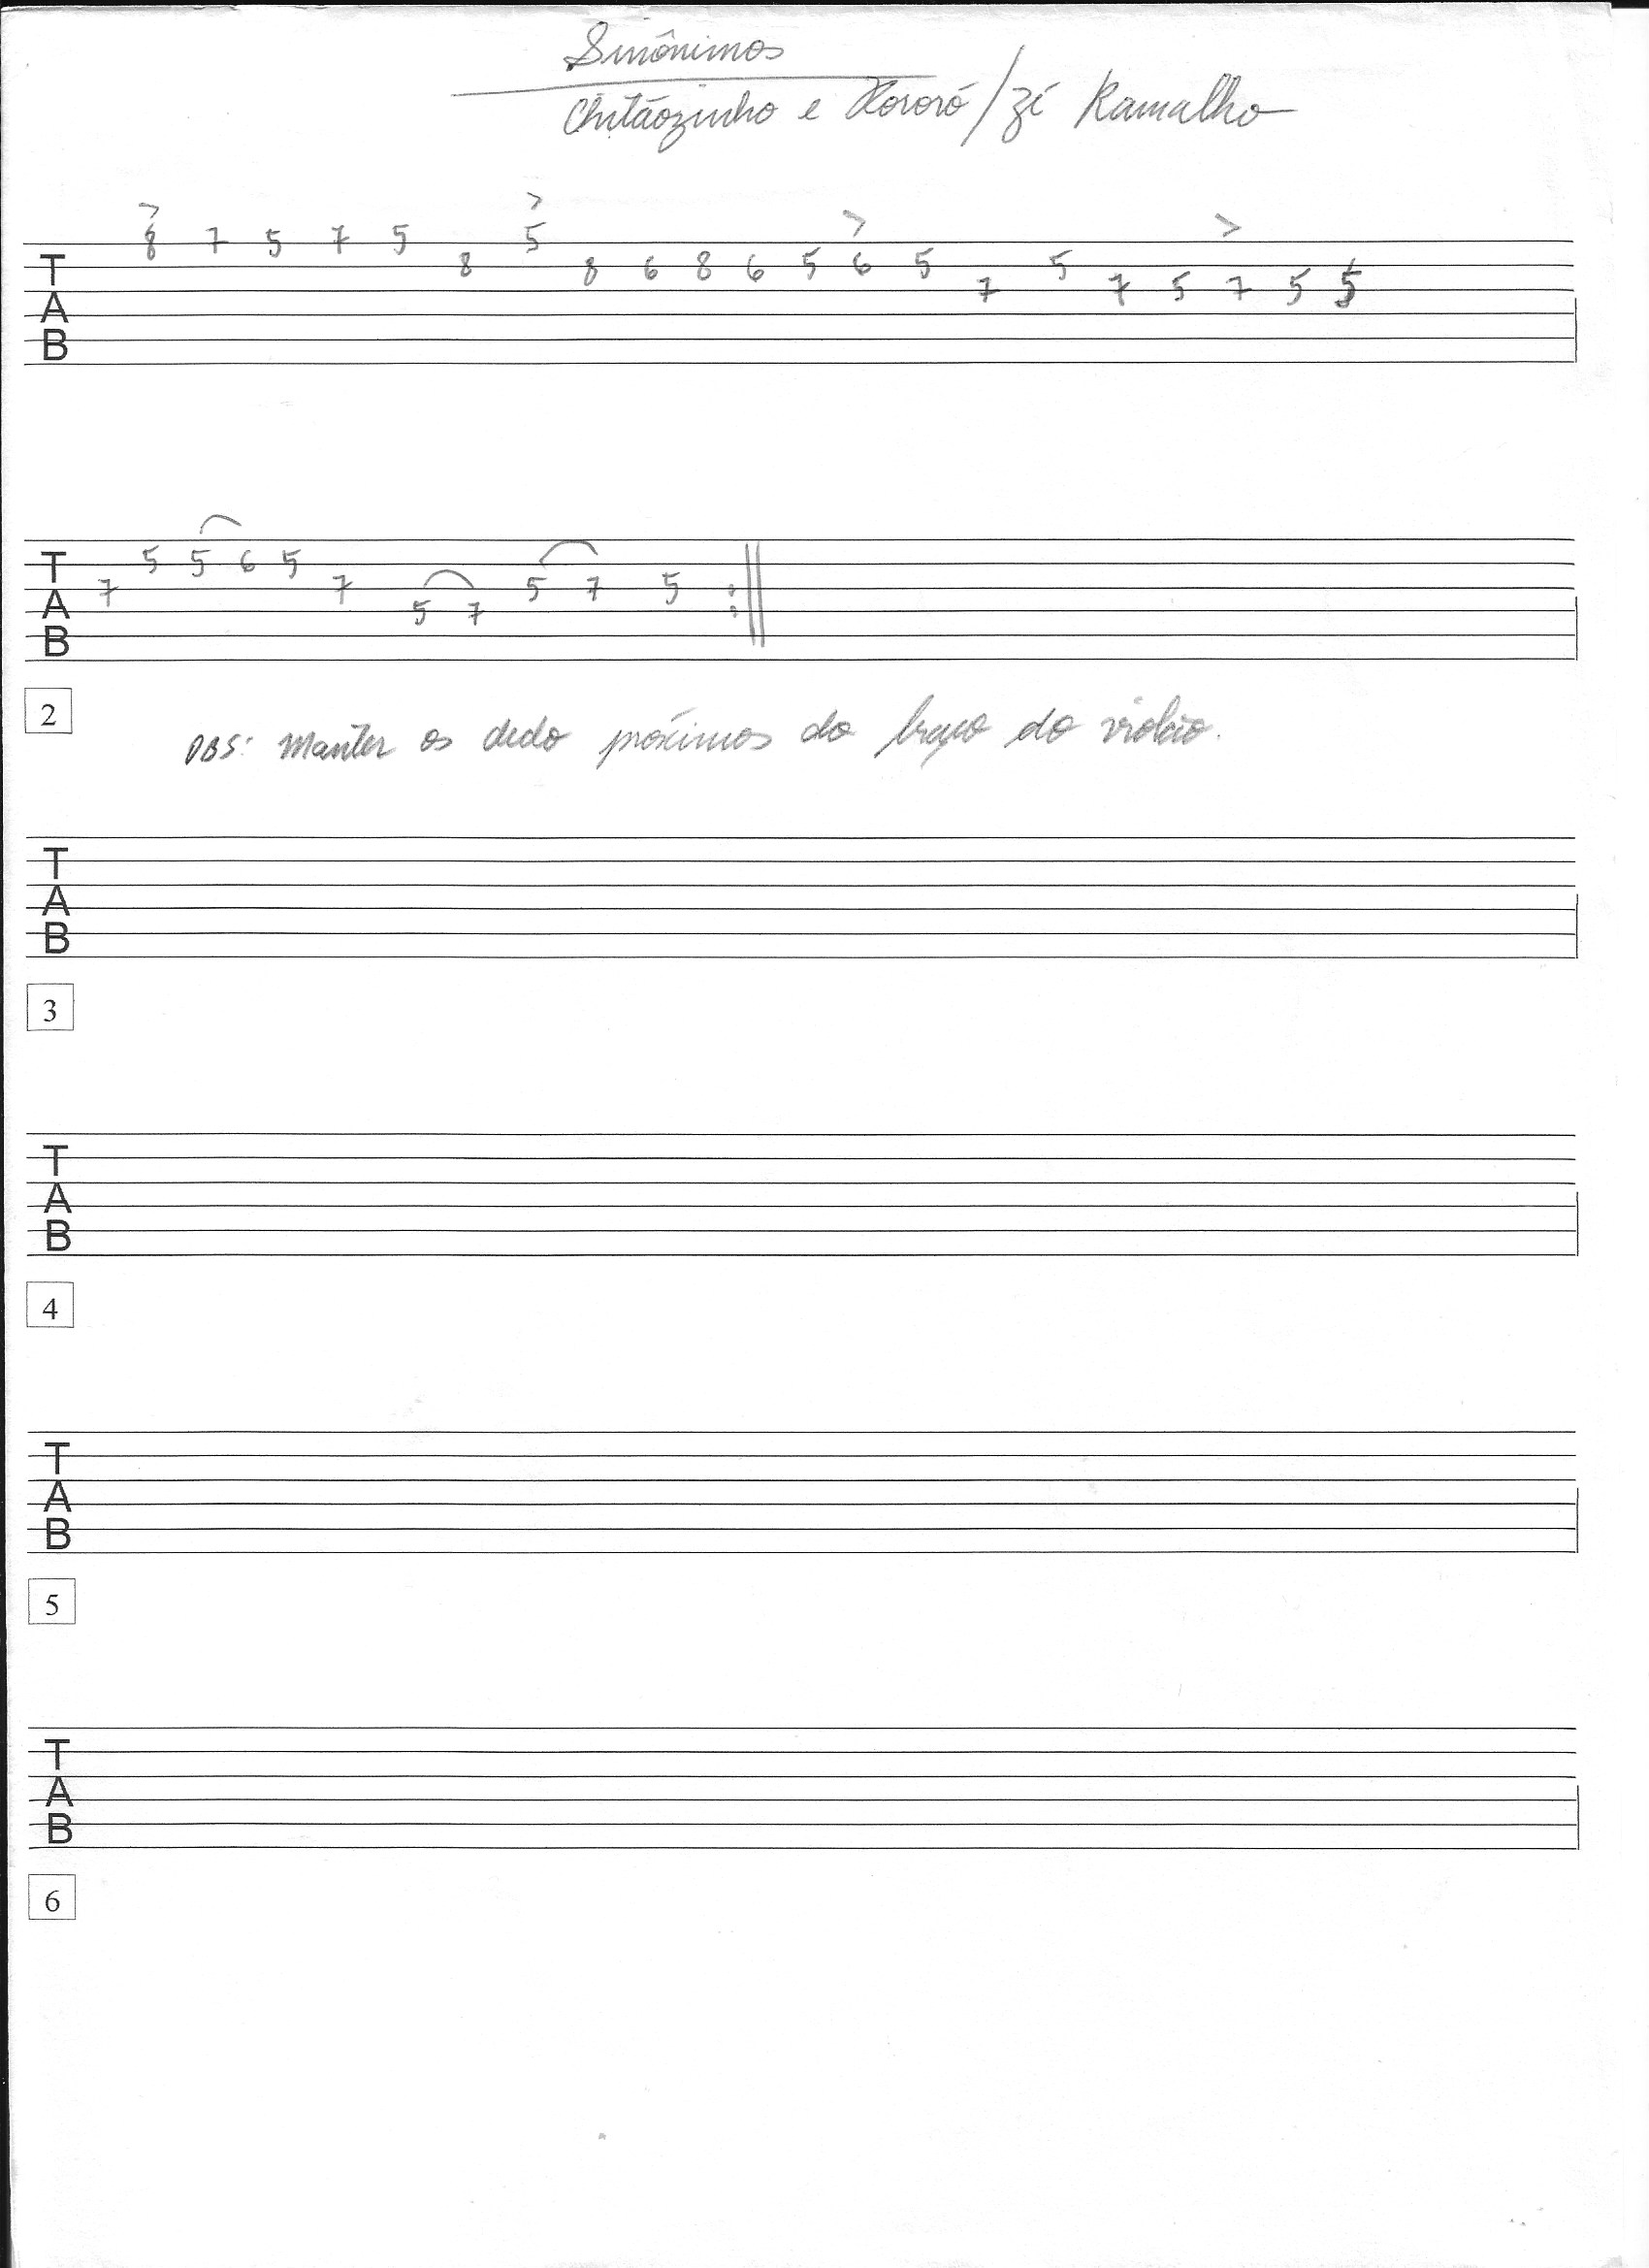 Sinônimos
Chitãozinho e Xororó / Zé Ramalho
> >  > >
8 7 5 7 5 8 5 8 6 8 6 5 6 5 7 5 7 5 7 5 5
T
A
B
7 5 5 6 5 7 5 7 5 7 5
T
A
B
2
OBS: Manter os dedo próximos do braço do violão.
T
A
B
3
T
A
B
4
T
A
B
5
T
A
B
6